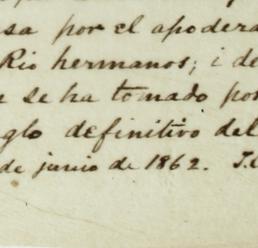 sa por el apodera
Rio hermanos; i de
se ha tomado por
glo definitivo del
de junio de 1862. J.